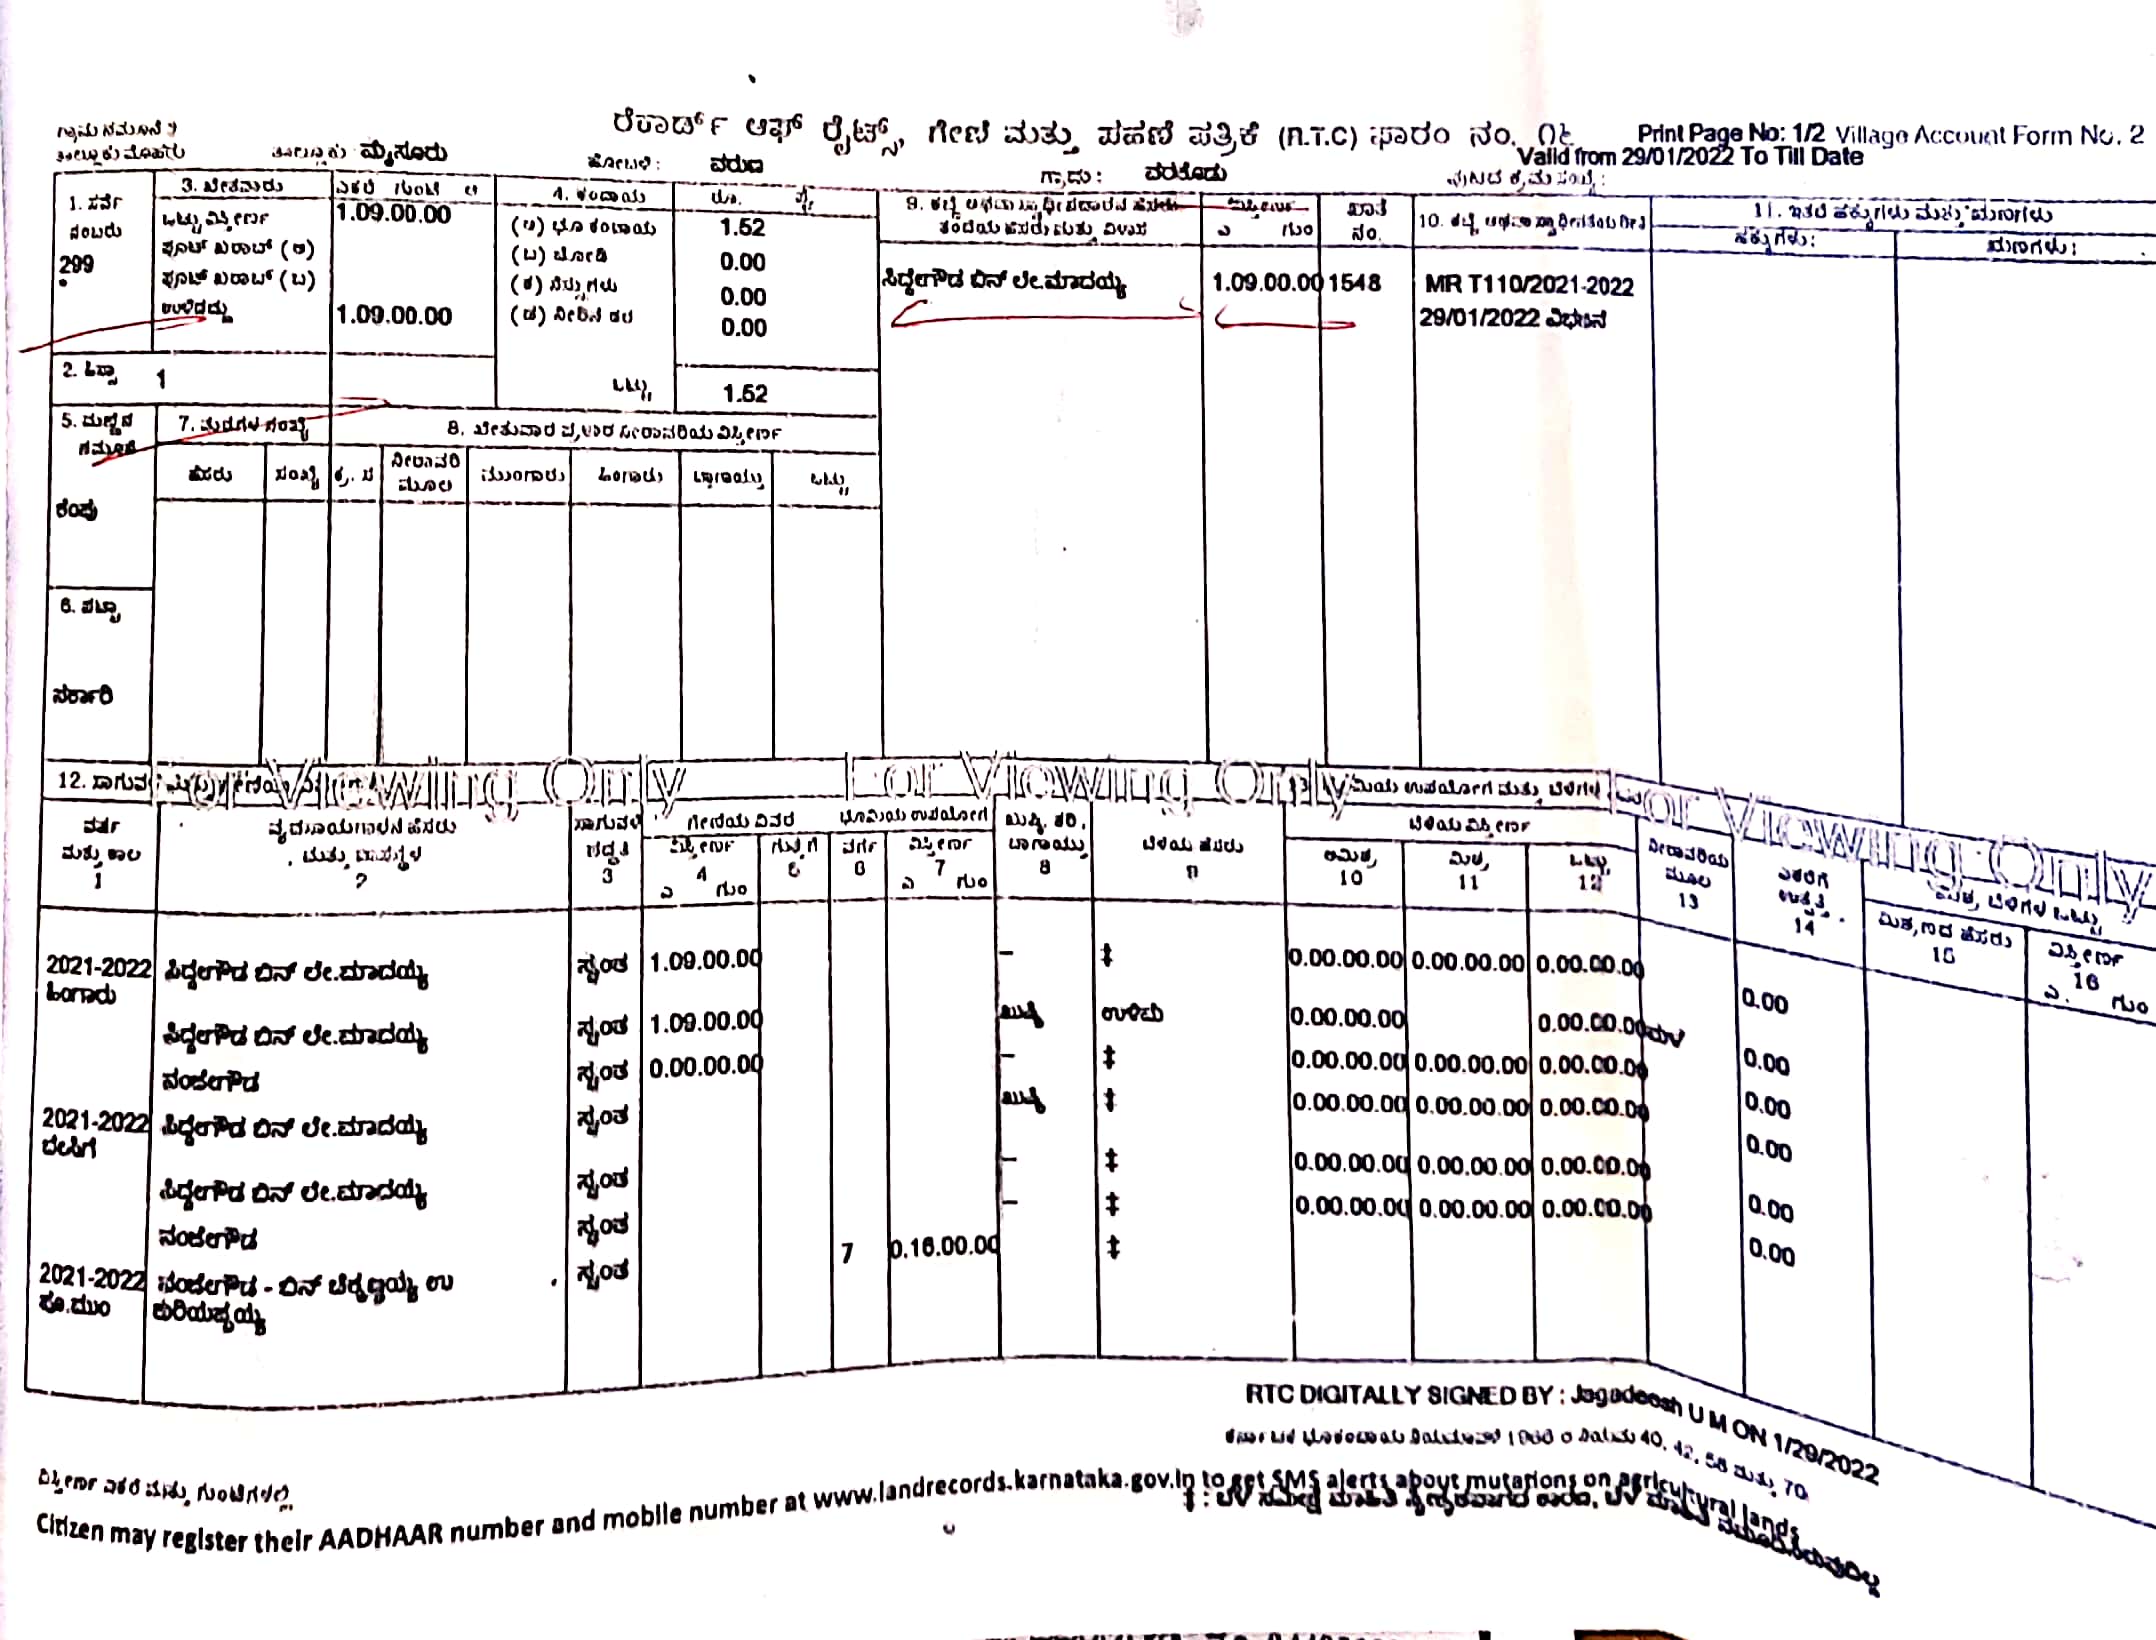 ಗ್ರಾಮ ನಮೂನೆ 2
ರೆಕಾರ್ಡ್ ಆಫ್ ರೈಟ್ಸ್, ಗೇಣಿ ಮತ್ತು ಪಹಣಿ ಪತ್ರಿಕೆ (R.T.C) ಫಾರಂ ನಂ. Print Page No: 1/2 Village Account Form No. 2
Valid from 29/01/2022 To Till Date
ತಾಲ್ಲೂಕು ಮೈಸೂರು ಹೋಬಳಿ: ವರುಣ ಗ್ರಾಮ: ವರಕೋಡು
1. ಸರ್ವೆ ನಂಬರು
299
3. ಎಕರೆ ಗುಂಟೆ
ಒಟ್ಟು ವಿಸ್ತೀರ್ಣ 1.09.00.00
ಫೂಟ್ ಖರಾಬ್ (ಅ)
ಫೂಟ್ ಖರಾಬ್ (ಬ)
ಉಳಿದದ್ದು 1.09.00.00
2. ಹಿಸ್ಸಾ 1
4. ಕಂದಾಯ ರೂ. ಪೈ
(ಅ) ಭೂ ಕಂದಾಯ 1.52
(ಬ) ಜೋಡಿ 0.00
(ಕ) 0.00
(ಡ) ನೀರಿನ ದರ 0.00
ಒಟ್ಟು 1.52
ವಿಸ್ತೀರ್ಣ
ಎ ಗುಂ
ಖಾತೆ ನಂ.
ಸಿದ್ದೇಗೌಡ ಬಿನ್ ಲೇ.ಮಾದಯ್ಯ 1.09.00.00 1548 MR T110/2021-2022
29/01/2022 ವಿಭಾಗ
11. ಇತರೆ ಹಕ್ಕುಗಳು ಮತ್ತು ಋಣಗಳು
ಹಕ್ಕುಗಳು: ಋಣಗಳು:
5. ಮಣ್ಣಿನ ನಮೂನೆ
ಕೆಂಪು
7. ಮರಗಳ ಸಂಖ್ಯೆ
ಹೆಸರು ಸಂಖ್ಯೆ ಕ್ರ. ಸ ನೀರಾವರಿ ಮೂಲ ಮುಂಗಾರು ಹಿಂಗಾರು ಬಾಗಾಯ್ತು ಒಟ್ಟು
6. ಪಟ್ಟಾ
ಸರ್ಕಾರಿ
For Viewing Only For Viewing Only For Viewing Only
ವರ್ಷ ಮತ್ತು ಕಾಲ 1
ವ್ಯವಸಾಯಗಾರನ ಹೆಸರು ಮತ್ತು ವಾಸಸ್ಥಳ 2
ಸಾಗುವಳಿ ಪದ್ಧತಿ 3
ಗೇಣಿಯ ವಿವರ
ವಿಸ್ತೀರ್ಣ 4 ಎ ಗುಂ
ಗುತ್ತಿಗೆ 5
ಭೂಮಿಯ ಉಪಯೋಗ
ವರ್ಗ 6
ವಿಸ್ತೀರ್ಣ 7 ಎ ಗುಂ
ಖುಷ್ಕಿ, ತರಿ, ಬಾಗಾಯ್ತು 8
ಬೆಳೆಯ ಹೆಸರು 9
ಬೆಳೆಯ ವಿಸ್ತೀರ್ಣ
ಅಮಿಶ್ರ 10
ಮಿಶ್ರ 11
ಒಟ್ಟು 12
ನೀರಾವರಿಯ ಮೂಲ 13
ಎಕರೆಗೆ ಉತ್ಪತ್ತಿ 14
ಮಿಶ್ರ ಬೆಳೆಗಳ ಒಟ್ಟು
ಮಿಶ್ರಣದ ಹೆಸರು 15
ವಿಸ್ತೀರ್ಣ 16 ಎ. ಗುಂ
2021-2022 ಸಿದ್ದೇಗೌಡ ಬಿನ್ ಲೇ.ಮಾದಯ್ಯ ಸ್ವಂತ 1.09.00.00 – ‡ 0.00.00.00 0.00.00.00 0.00.00.00 0.00
ಹಿಂಗಾರು
ಸಿದ್ದೇಗೌಡ ಬಿನ್ ಲೇ.ಮಾದಯ್ಯ ಸ್ವಂತ 1.09.00.00 ಖುಷ್ಕಿ 0.00.00.00 0.00.00.00 ಮಳೆ 0.00
ನಂಜೇಗೌಡ ಸ್ವಂತ 0.00.00.00 – ‡ 0.00.00.00 0.00.00.00 0.00.00.00 0.00
2021-2022 ಸಿದ್ದೇಗೌಡ ಬಿನ್ ಲೇ.ಮಾದಯ್ಯ ಸ್ವಂತ ಖುಷ್ಕಿ ‡ 0.00.00.00 0.00.00.00 0.00.00.00 0.00
ಬೇಸಿಗೆ
ಸಿದ್ದೇಗೌಡ ಬಿನ್ ಲೇ.ಮಾದಯ್ಯ ಸ್ವಂತ – ‡ 0.00.00.00 0.00.00.00 0.00.00.00 0.00
ನಂಜೇಗೌಡ ಸ್ವಂತ – ‡ 0.00.00.00 0.00.00.00 0.00.00.00 0.00
2021-2022 ನಂಜೇಗೌಡ - ಬಿನ್ ಉ ಸ್ವಂತ 7 0.16.00.00 ‡
ಪೂ.ಮುಂ ಕುರಿಯಪ್ಪಯ್ಯ
RTC DIGITALLY SIGNED BY : Jagadeesh U M ON 1/29/2022
ವಿಸ್ತೀರ್ಣ ಎಕರೆ ಮತ್ತು ಗುಂಟೆಗಳಲ್ಲಿ
Citizen may register their AADHAAR number and mobile number at www.landrecords.karnataka.gov.in to get SMS alerts about mutations on agricultural lands